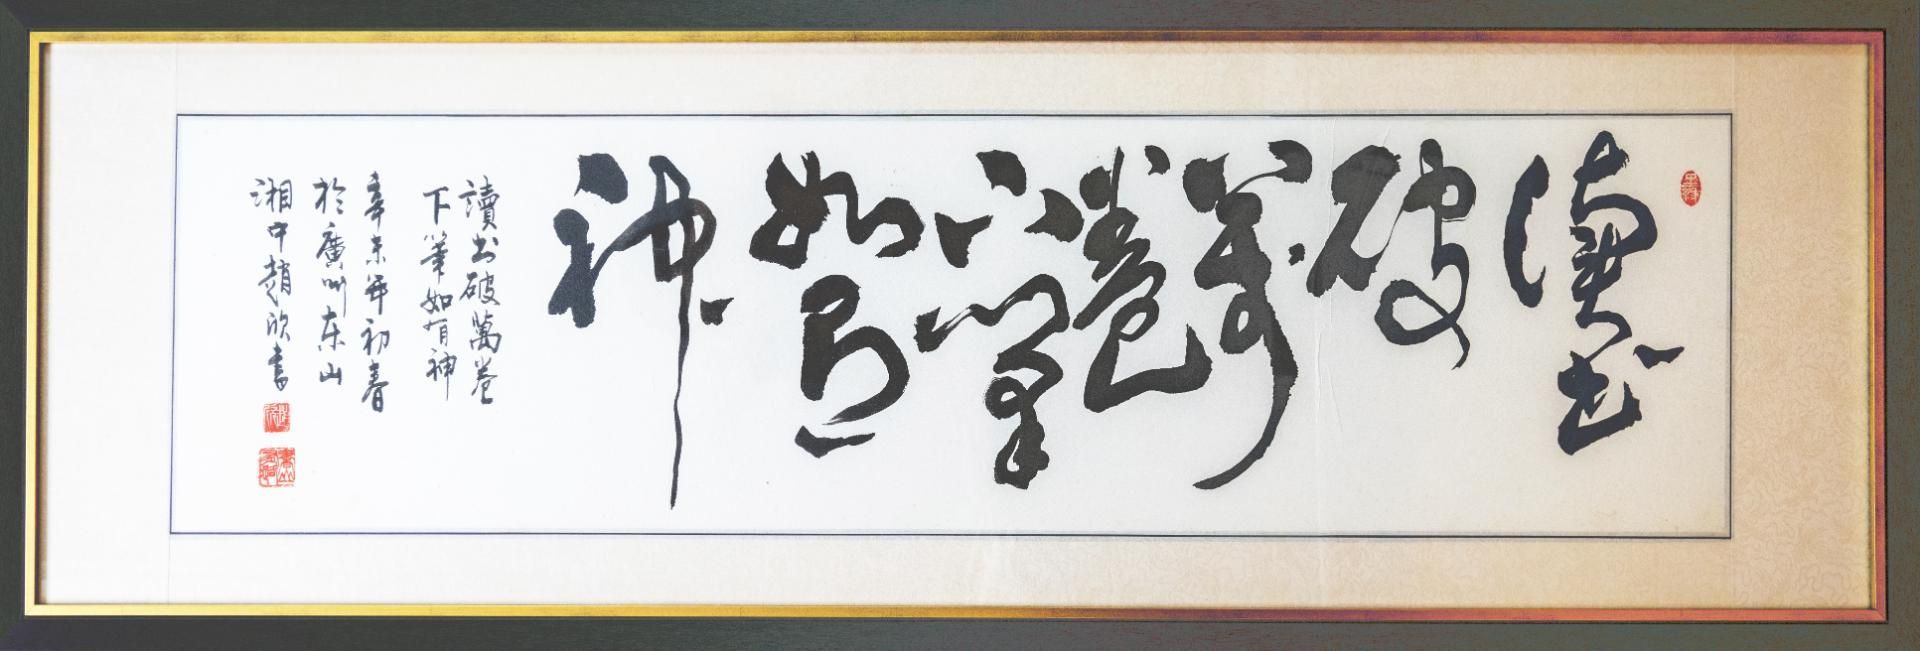 讀书
破
萬
卷
下筆
如有
神
讀书破萬卷
下筆如有神
辛未年初春
於廣州东山
湘中趙欣書